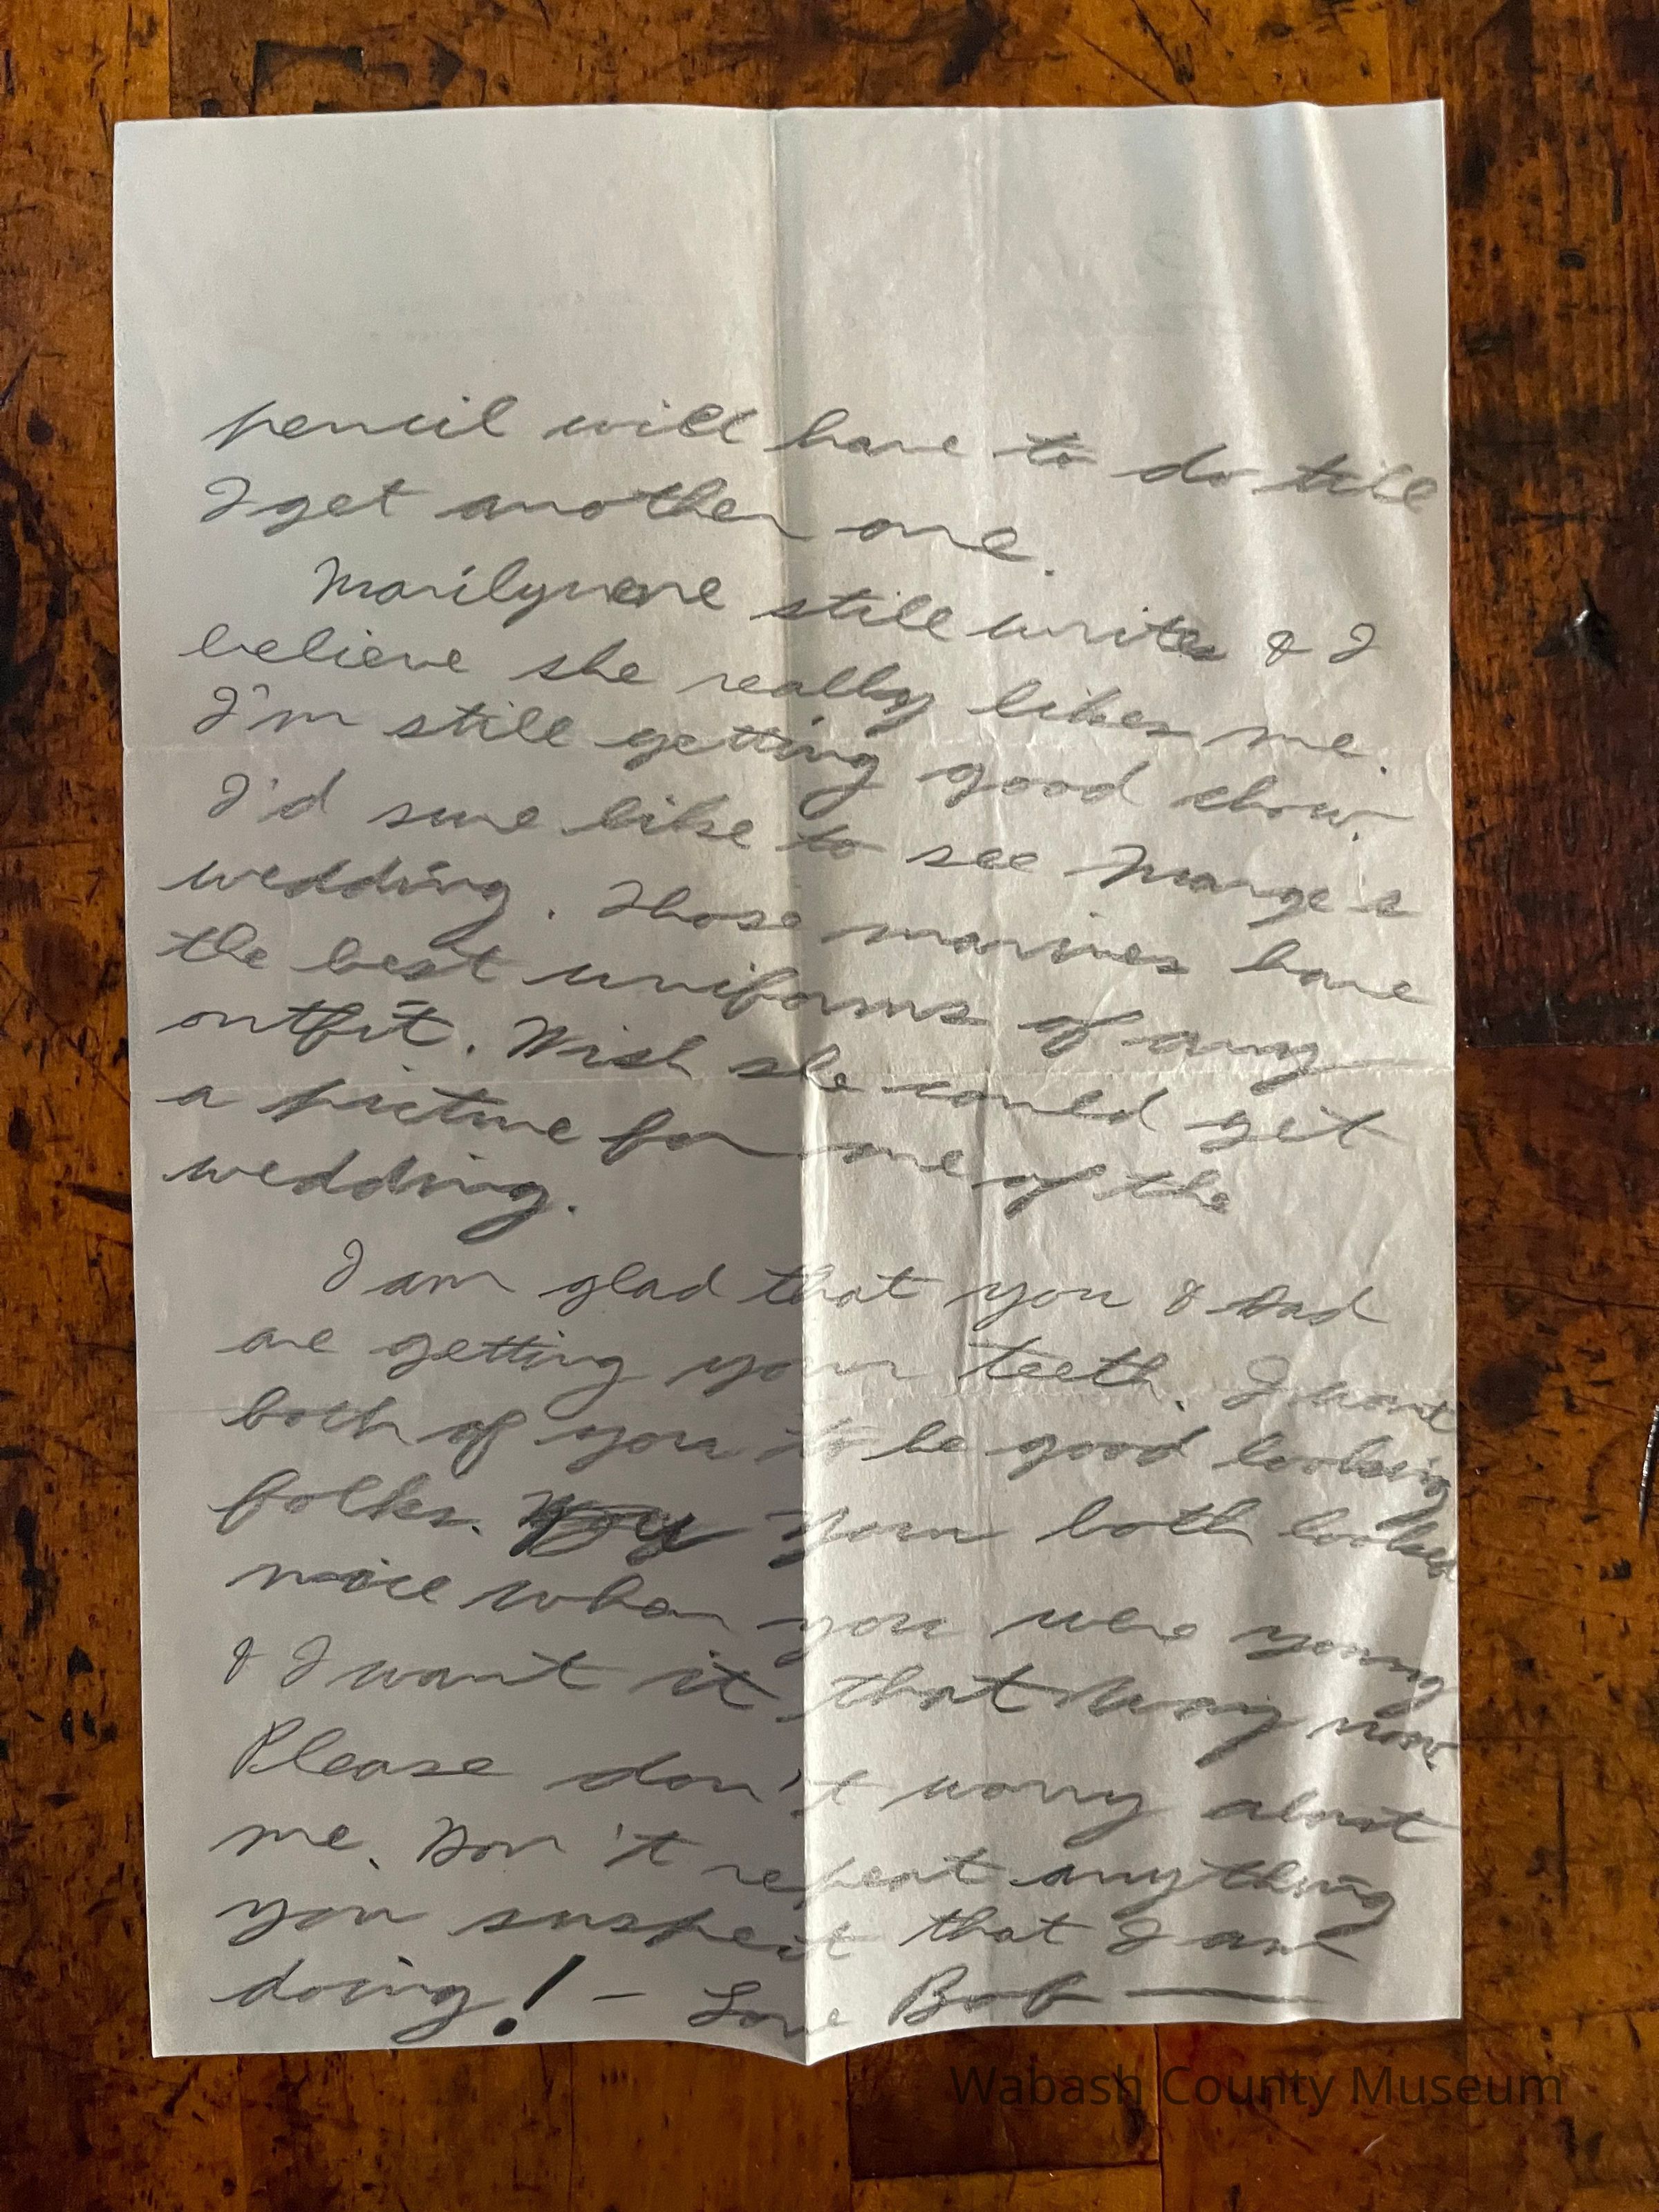 pencil will have to do till
I get another one.
Marilynne still writes & I
believe she really likes me.
I'm still getting good chow.
I'd sure like to see Marge's
wedding. Those marines have
the best uniforms of any
outfit. Wish she could get
a picture for me of the
wedding.
I am glad that you & Dad
are getting your teeth. I want
both of you to be good looking
folks. You both looked
nice when you were young
& I want it that way now
Please don't worry about
me. Don't repeat anything
you suspect that I am
doing! - Love Bob —
Wabash County Museum